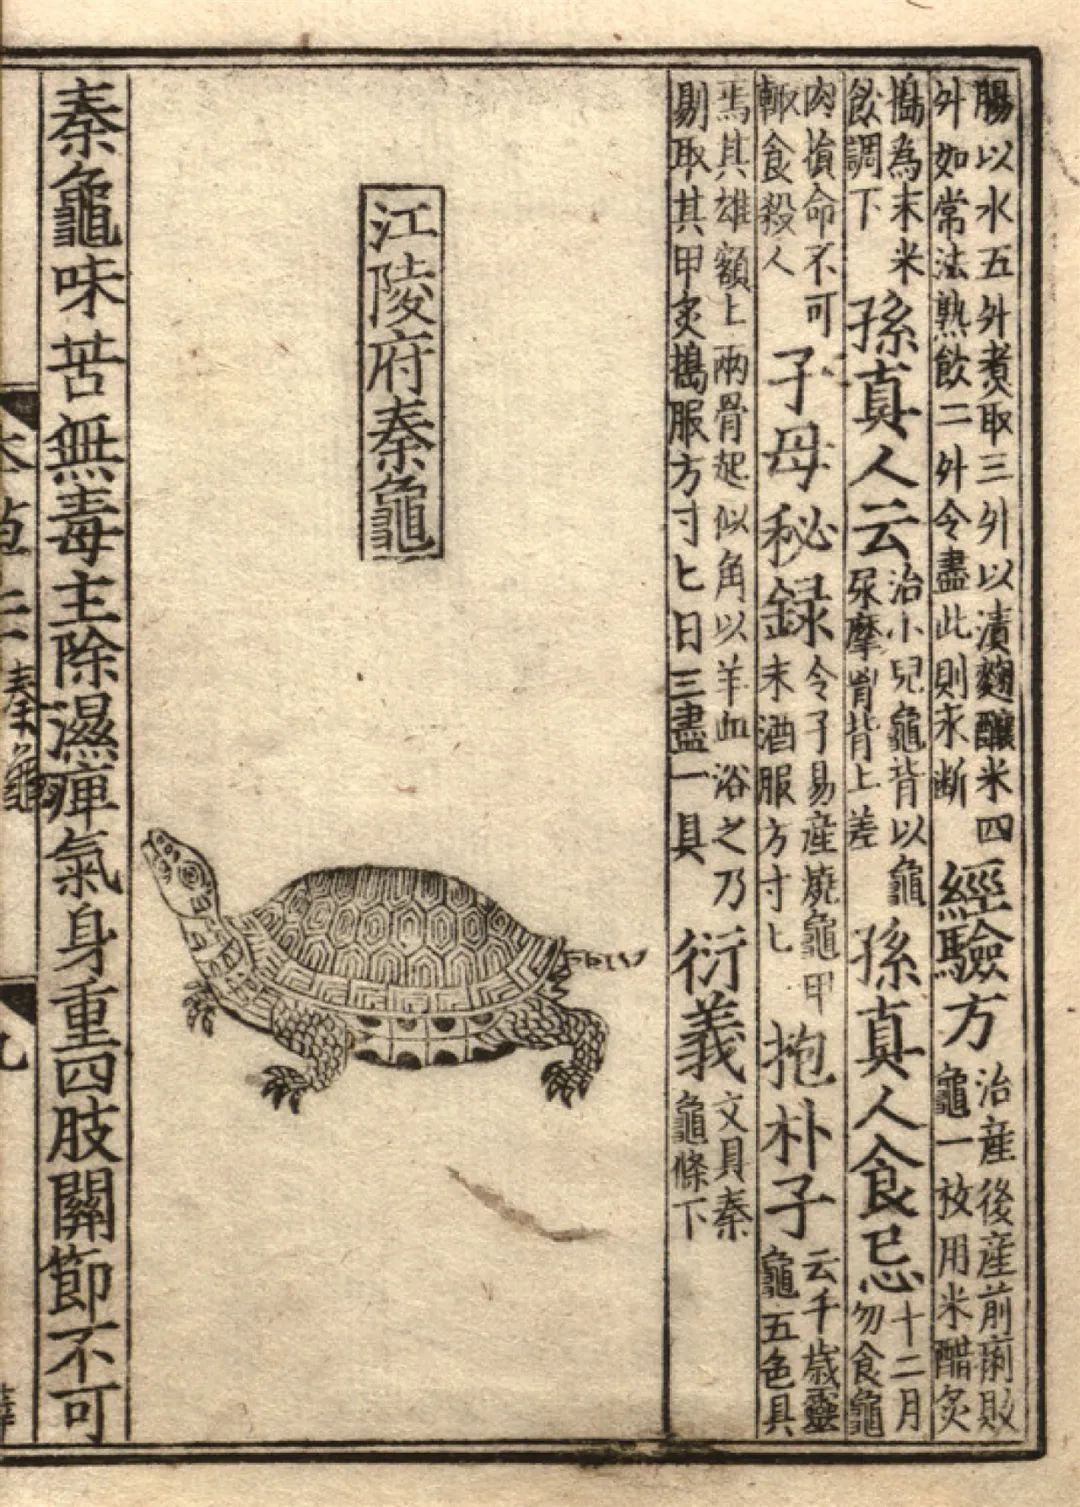 腸以水五升煮取三升以漬麴釀米四
升如常法熟飲二升令盡此則永斷
經驗方
治產後產前痢敗
龜一枚用米醋炙
搗為末米
飲調下
孫真人云
治小兒龜背以龜
尿摩胷背上差
孫真人食忌
十二月
勿食龜
肉損命不可
輙食殺人
子母秘録
令子易産燒龜甲
末酒服方寸匕
抱朴子
云千歲靈
龜五色具
焉其雄額上兩骨起似角以羊血浴之乃
剔取其甲炙搗服方寸匕日三盡一具
衍義
文具秦
龜條下
江陵府秦龜
秦龜味苦無毒主除濕痺氣身重四肢關節不可
秦龜
九